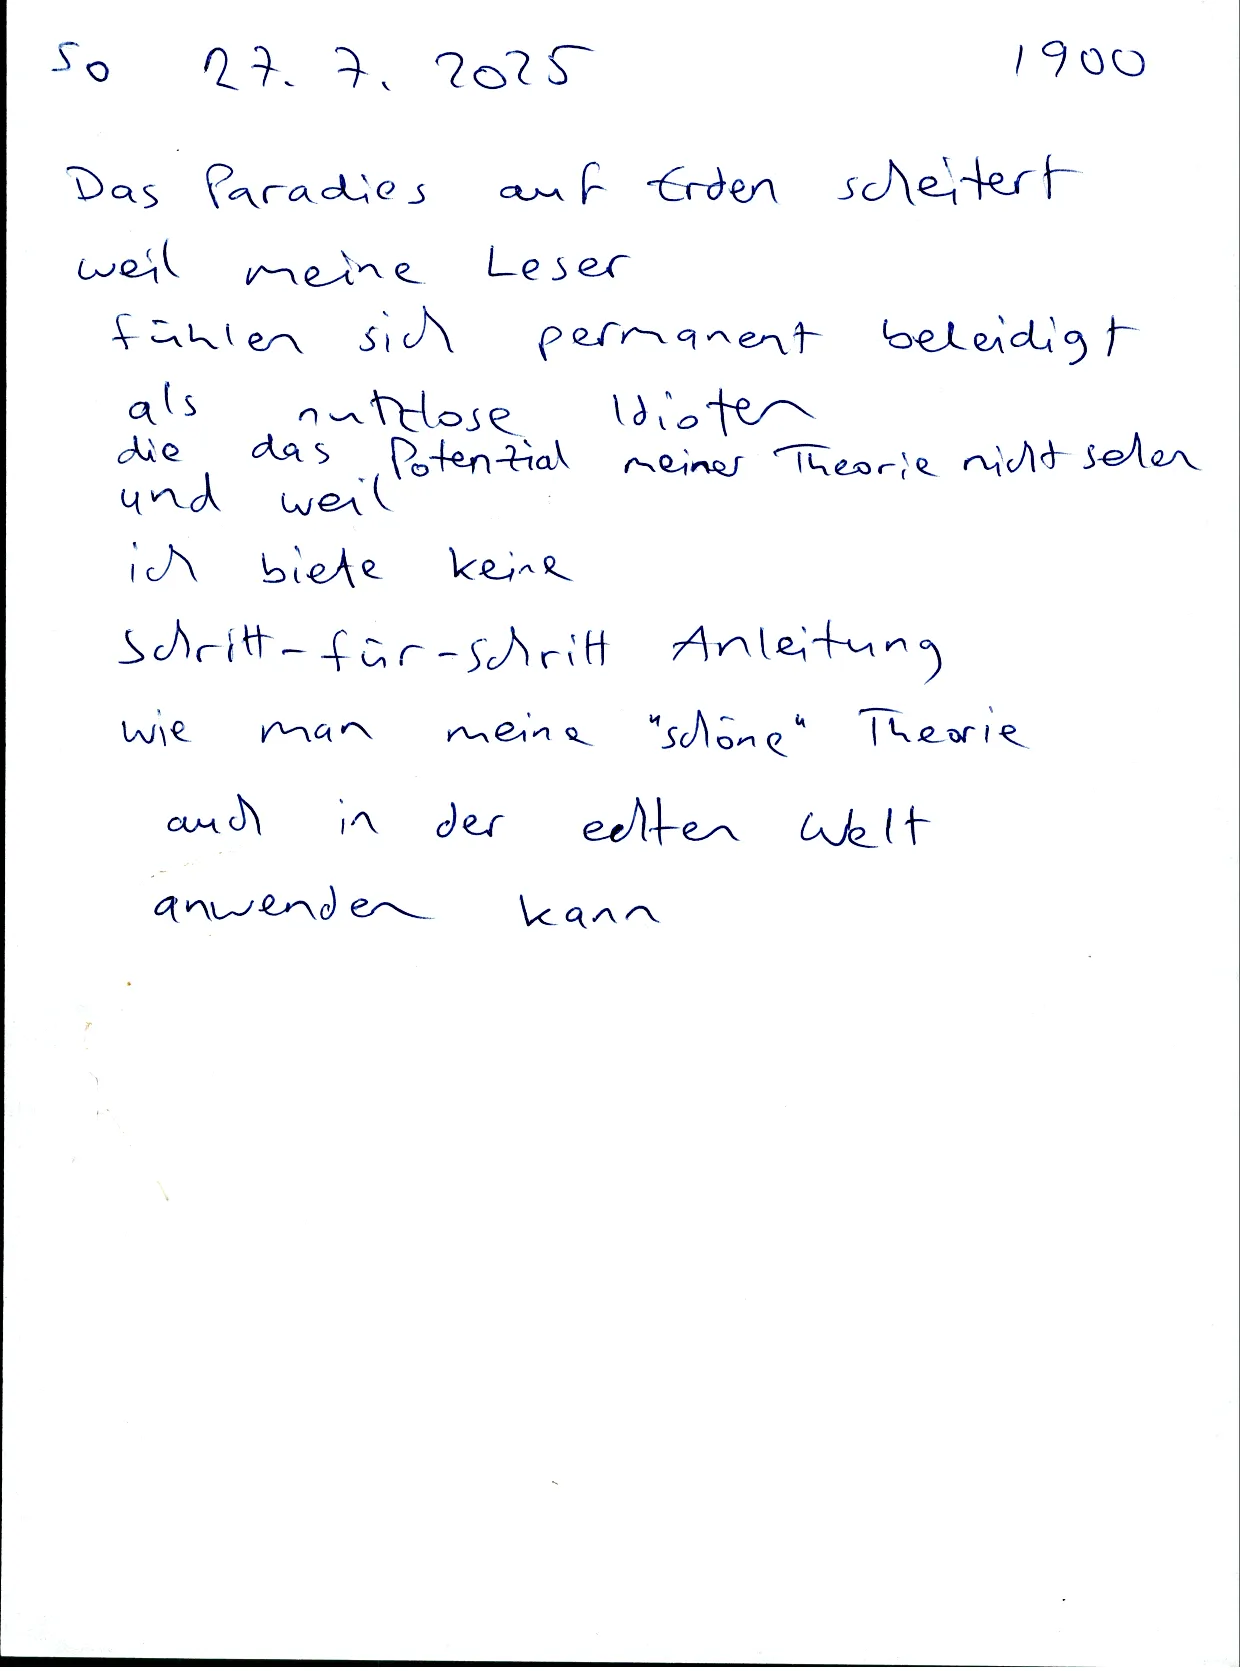 So 27. 7. 2025 1900
Das Paradies auf Erden scheitert
weil meine Leser
fühlen sich permanent beleidigt
als nutzlose Idioten
die das Potenzial meiner Theorie nicht sehen
und weil
ich biete keine
Schritt-für-Schritt Anleitung
wie man meine "schöne" Theorie
auch in der echten Welt
anwenden kann